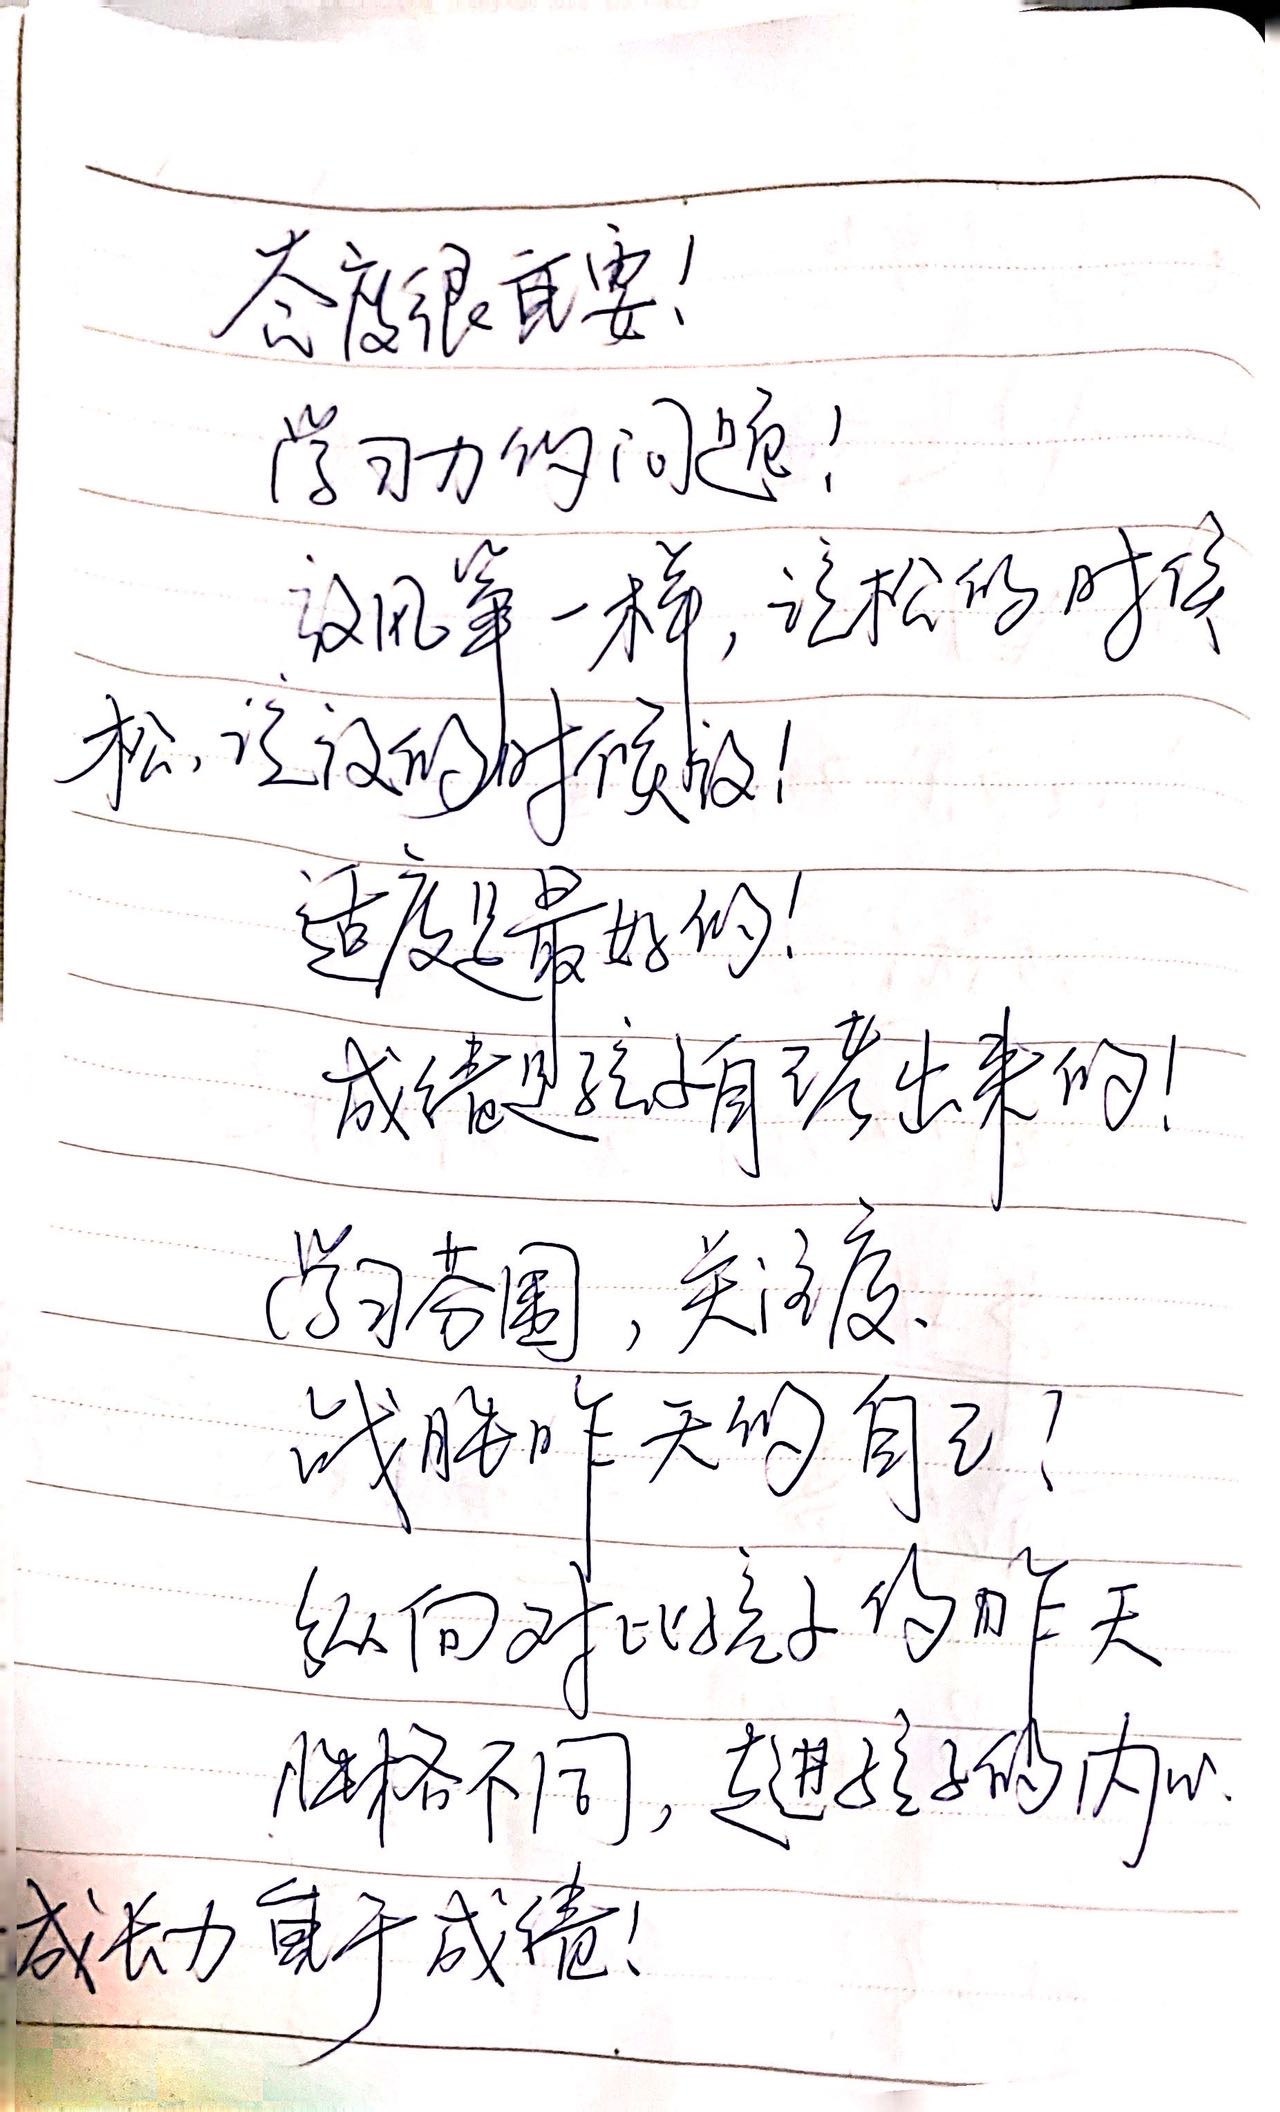 态度很重要!
学习力的问题!
放风筝一样,该松的时候
松,该放的时候放!
适度是最好的!
成绩是孩子自己考出来的!
学习芬围,关注度、
战胜昨天的自己!
纵向对比孩子的昨天
性格不同,走进孩子的内心、
成长力重于成绩!